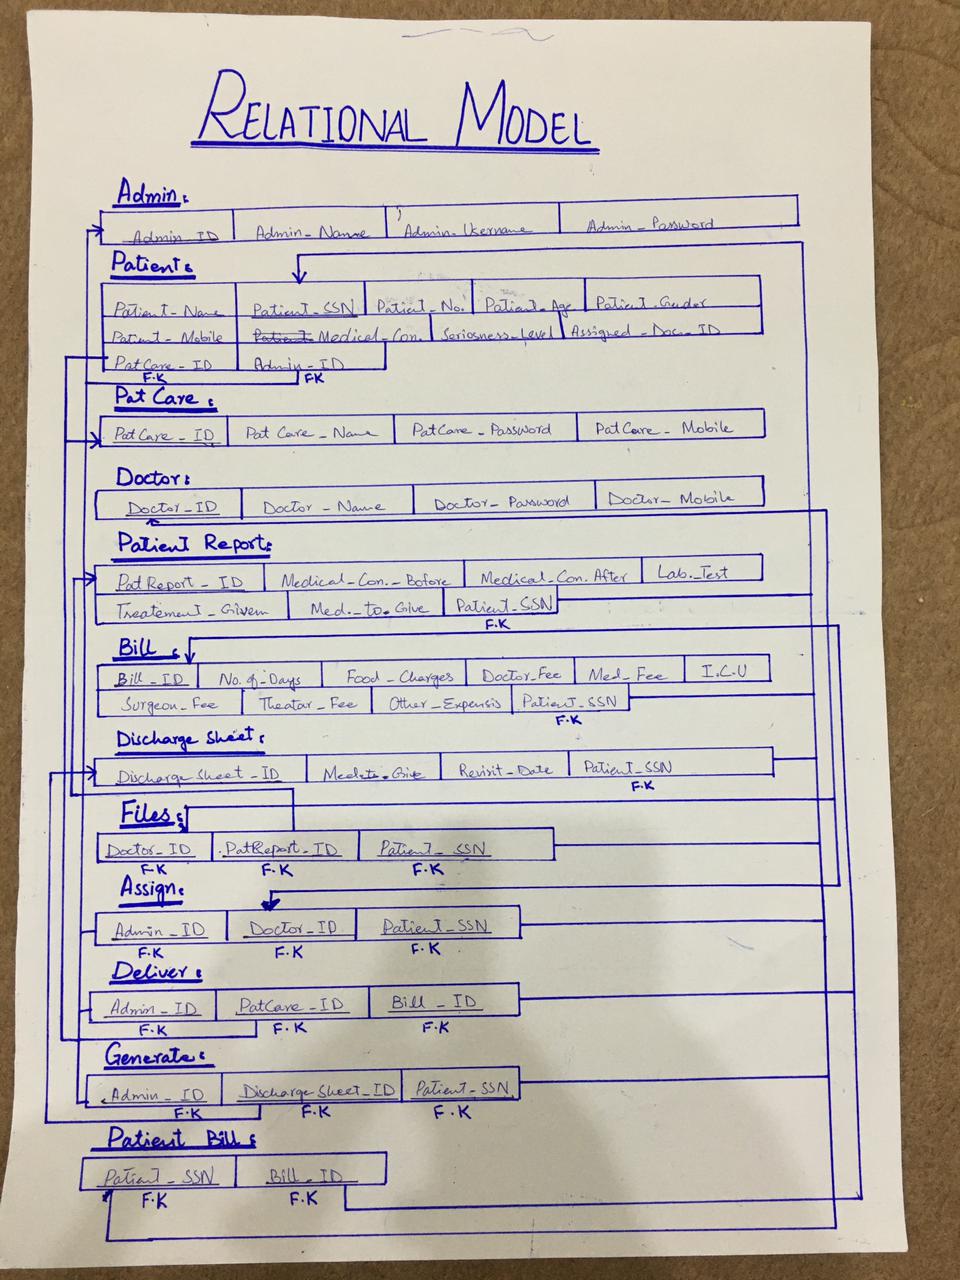 RELATIONAL MODEL
Admin:
Admin_ID Admin_Name Admin_Username Admin_Password
Patient:
Patient_Name Patient_SSN Patient_No. Patient_Age Patient_Gender
Patient_Mobile Patient Medical_Con. Seriosness_Level Assigned_Doc._ID
PatCare_ID Admin_ID
F.K FK
Pat Care:
PatCare_ID Pat Care_Name PatCare_Password PatCare_Mobile
Doctor:
Doctor_ID Doctor_Name Doctor_Password Doctor_Mobile
Patient Report:
PatReport_ID Medical_Con._Before Medical_Con. After Lab._Test
Treatement_Givem Med._to.Give Patient_SSN
F.K
Bill:
Bill_ID No.of.Days Food_Charges Doctor_Fee Med_Fee I.C.U
Surgeon_Fee Theatar_Fee Other_Expensis Patient_SSN
F.K
Discharge Sheet:
Discharge Sheet_ID Medeto.Give Revisit_Date Patient_SSN
F.K
Files:
Doctor_ID PatReport_ID Patient_SSN
F.K F.K F.K
Assign:
Admin_ID Doctor_ID Patient_SSN
F.K F.K F.K
Deliver:
Admin_ID PatCare_ID Bill_ID
F.K F.K F.K
Generate:
Admin_ID Discharge Sheet_ID Patient_SSN
F.K F.K F.K
Patient Bill:
Patient_SSN Bill_ID
F.K F.K